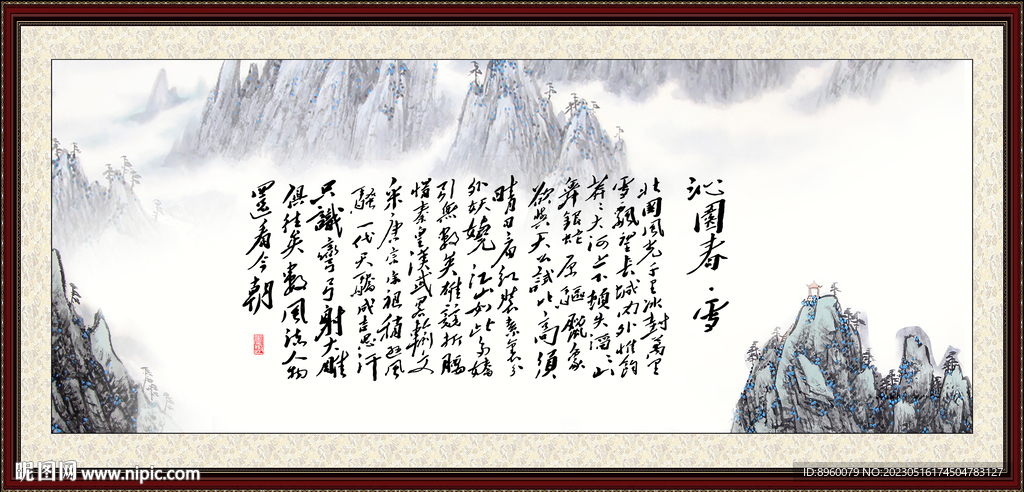 沁園春·雪
北國風光千里冰封萬里
雪飄望长城内外惟餘
莽々大河上下頓失滔々山
舞銀蛇原驅蠟象
欲與天公試比高須
晴日看红裝素裹分
外妖嬈江山如此多嬌
引無數英雄競折腰
惜秦皇漢武略輸文
采唐宗宋祖稍遜風
騷一代天驕成吉思汗
只識彎弓射大雕
俱往矣數風流人物
還看今朝
昵图网 www.nipic.com
ID:8960079 NO:20230516174504783127